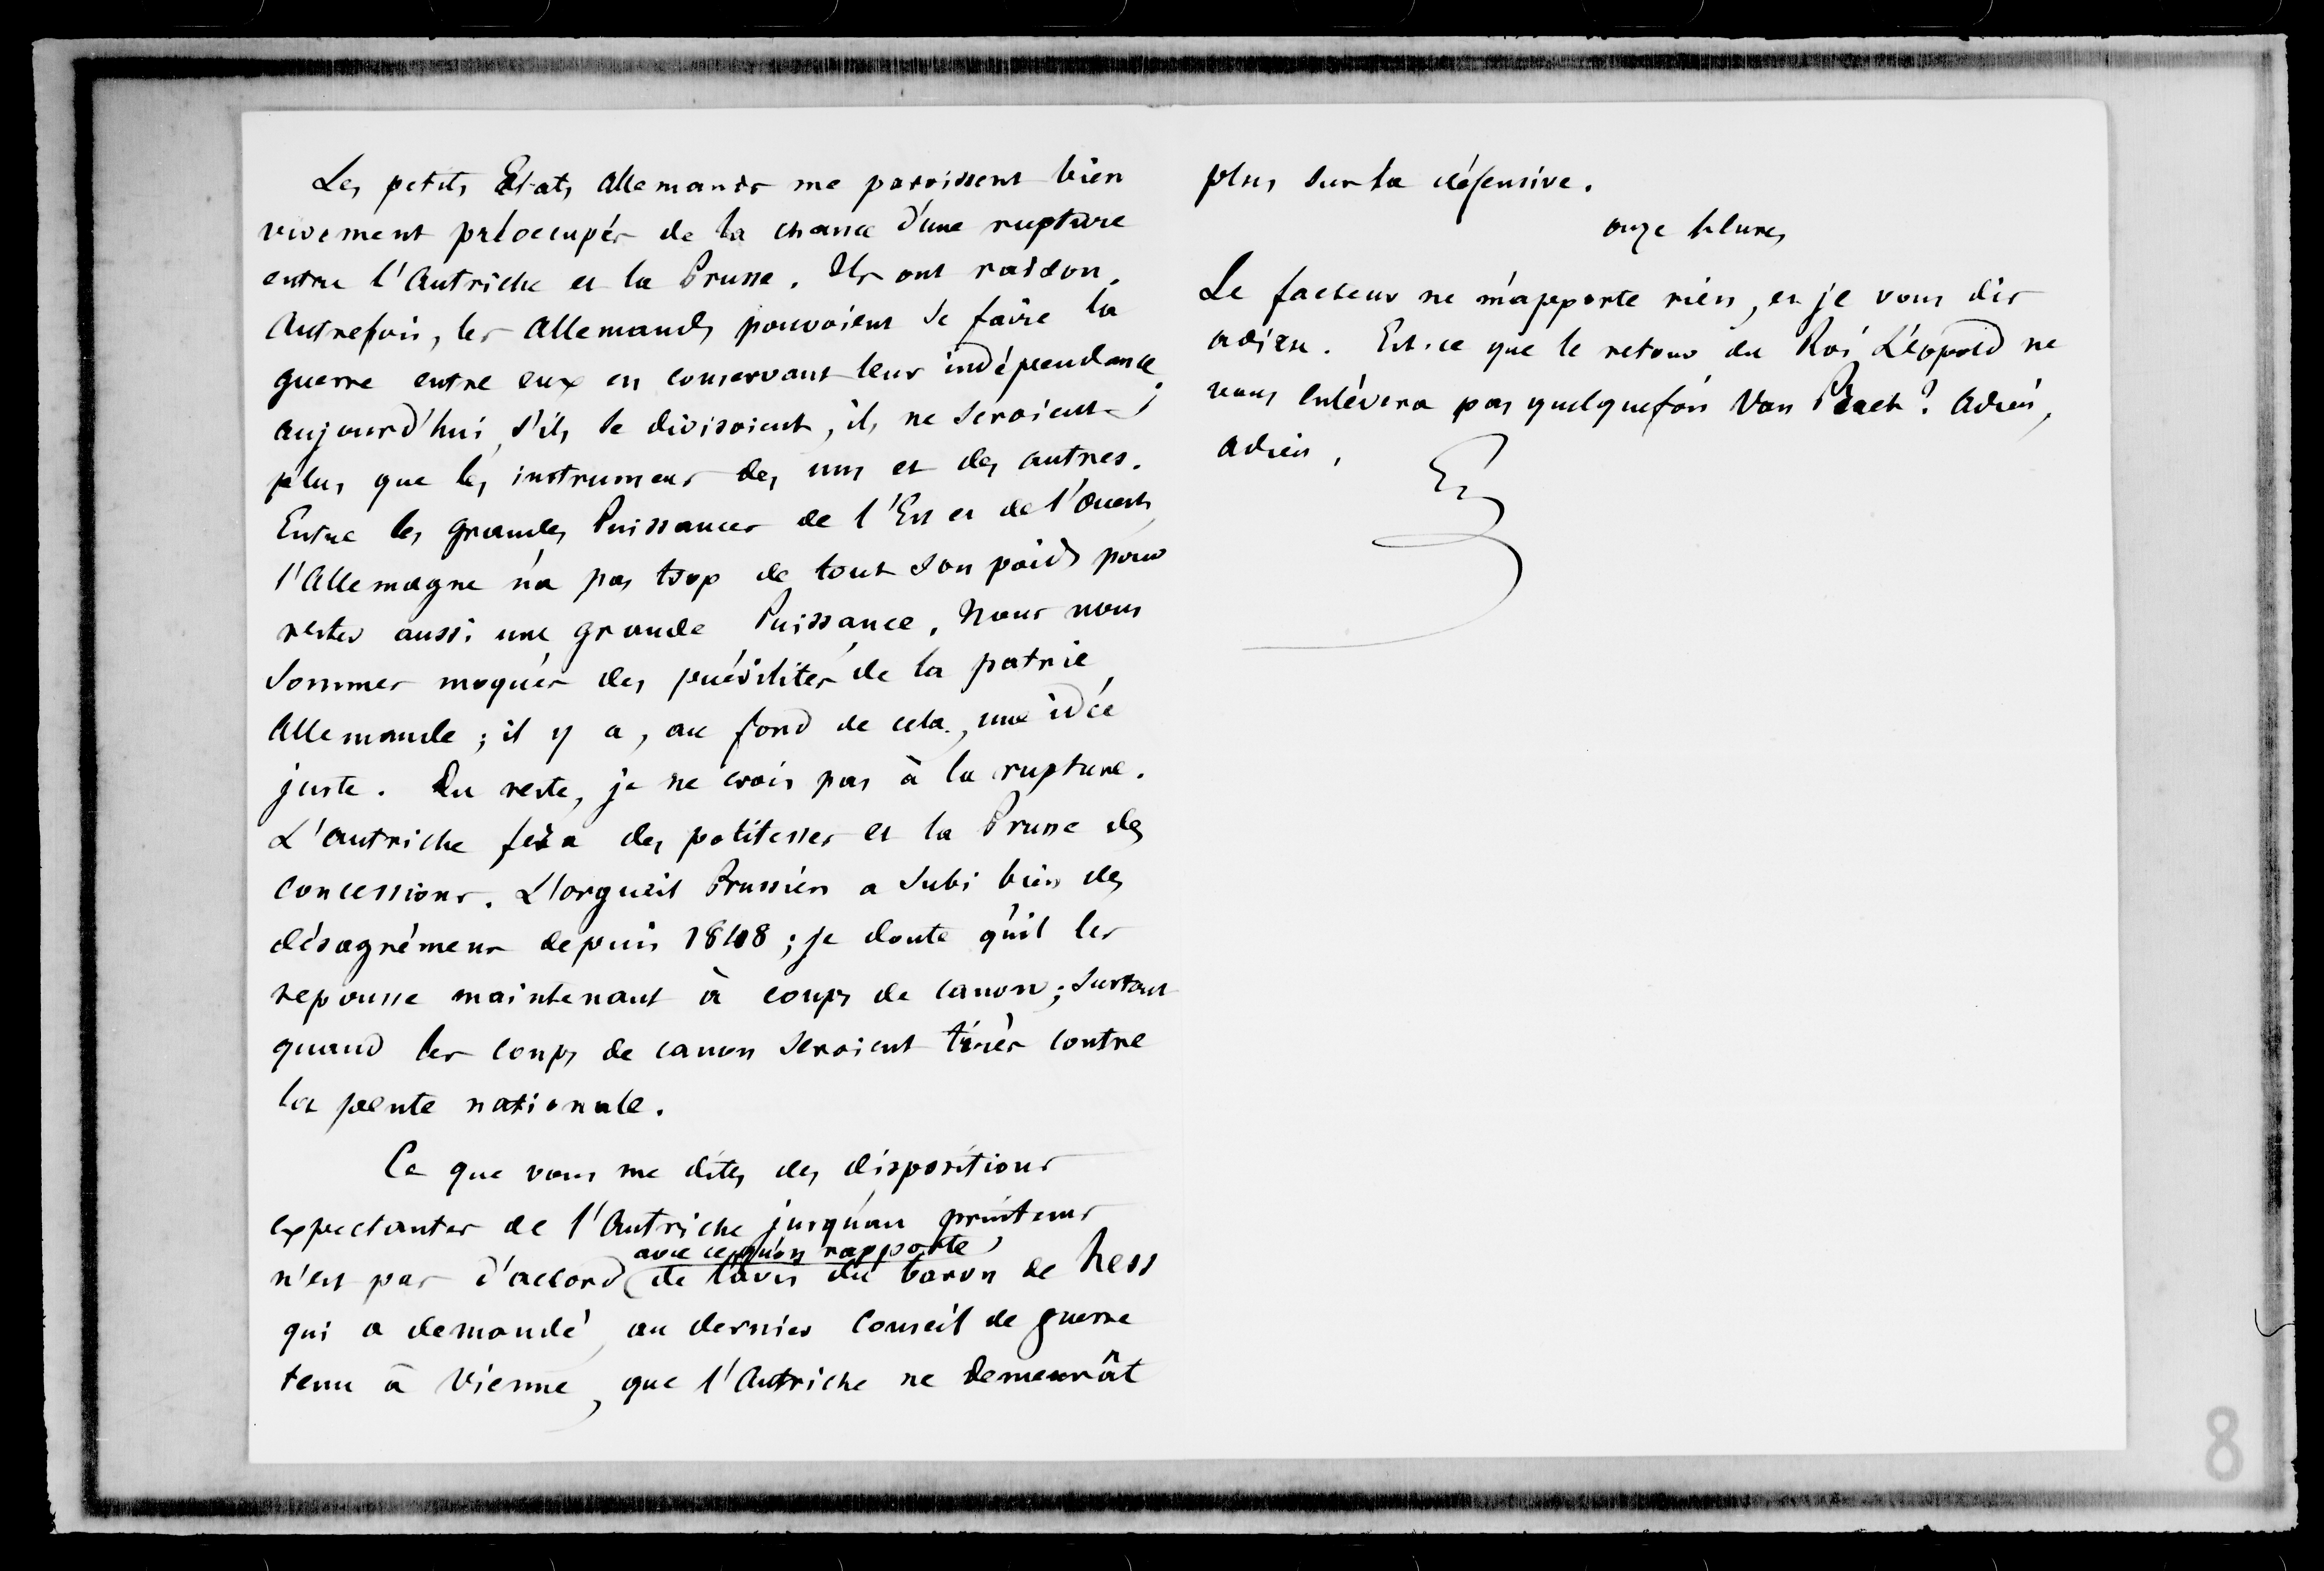 Les petits Etats Allemands me paroissent bien
vivement préoccupés de la chance d'une rupture
entre l'Autriche et la Prusse. Ils ont raison.
Autrefois, les Allemands pouvoient se faire la
guerre entre eux en conservant leur indépendance ;
aujourd'hui, s'ils se divisoient, ils ne seroient
plus que les instrumens des uns et des autres.
Entre les grandes Puissances de l'Est et de l'Ouest,
l'Allemagne n'a pas trop de tout son poids pour
rester aussi une grande Puissance. Nous nous
sommes moqués des puérilités de la patrie
Allemande ; il y a, au fond de cela, une idée
juste. Du reste, je ne crois pas à la rupture.
L'Autriche fera des politesses et la Prusse des
concessions. L'orgueil Prussien a subi bien des
désagrémens depuis 1848 ; je doute qu'il les
repousse maintenant à coups de canon ; surtout
quand les coups de canon seroient tirés contre
la pente nationale.
Ce que vous me dites des dispositions
expectantes de l'Autriche jusqu'au printems
avec ce qu'on rapporte
n'est pas d'accord (de l'avis du baron de hess
qui a demandé, au dernier Conseil de guerre
tenu à Vienne, que l'Autriche ne demeurât
plus sur la défensive.
onze heures
Le facteur ne m'apporte rien, et je vous dis
adieu. Est-ce que le retour du Roi Léopold ne
vous enlèvera pas quelquefois Van Praet ? Adieu,
adieu,
8